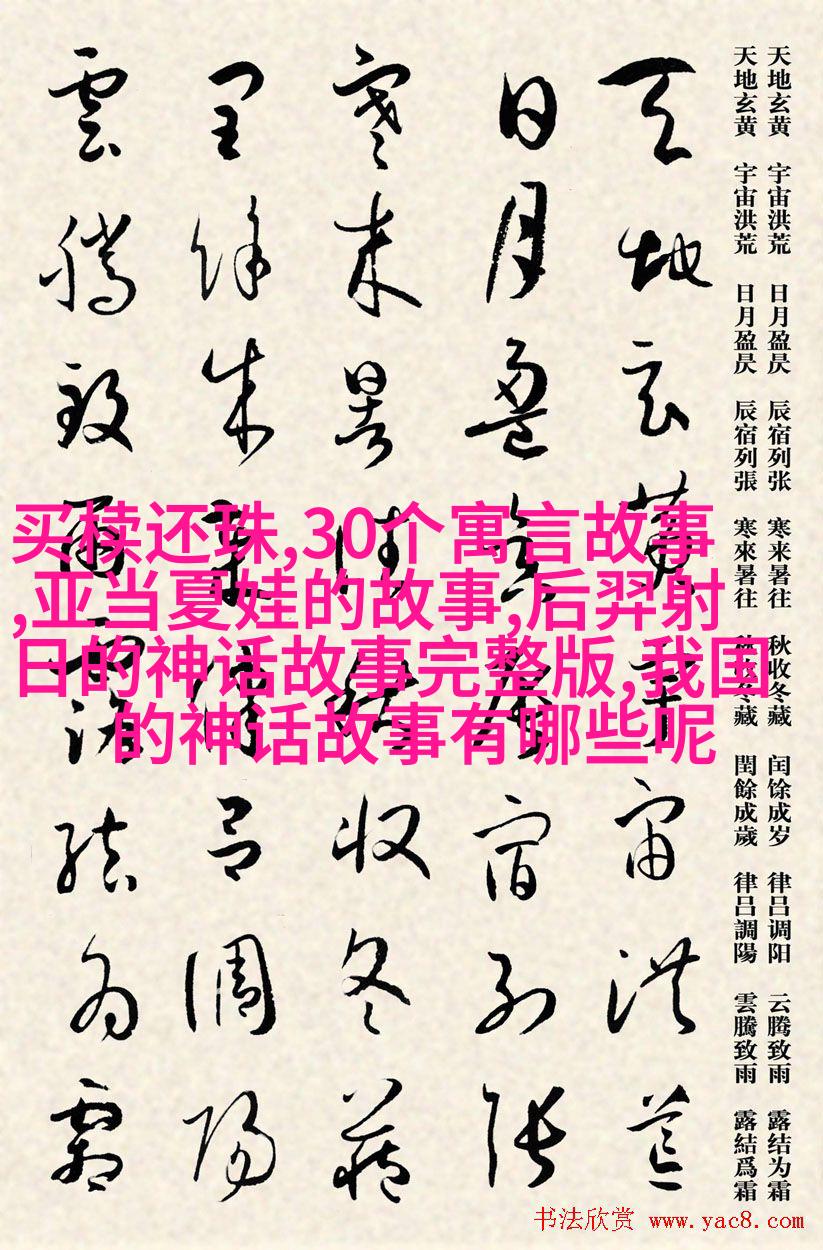 天地玄黄 宇宙洪荒 日月盈昃 辰宿列张 寒来暑往 秋收冬藏 闰馀成岁 律吕调阳 云腾致雨 露结为霜
天地玄黄 宇宙洪荒 日月盈昃 辰宿列張 寒來暑往 秋收冬藏 閏餘成歲 律呂調陽 雲騰致雨 露結爲霜
天地玄黄宇宙洪荒
日月盈昃辰宿列張
寒来暑往秋收冬藏
閏餘成歲律吕調陽
雲騰致雨露結為霜
买椟还珠,30个寓言故事
,亚当夏娃的故事,后羿射
日的神话故事完整版,我国
的神话故事有哪些呢
书法欣赏 www.yac8.com